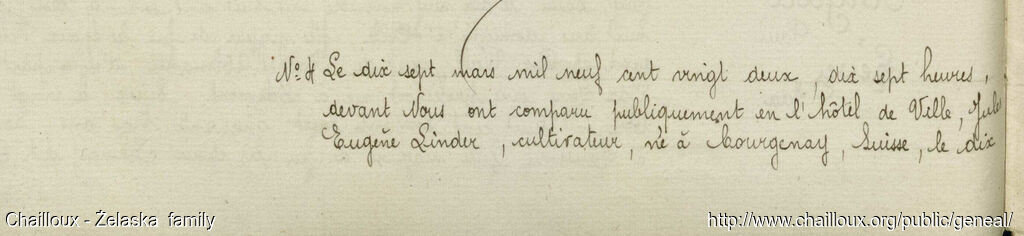 N° 4 Le dix sept mars mil neuf cent vingt deux, dix sept heures,
devant Nous ont comparu publiquement en l'hôtel de Ville, Jules
Eugène Linder, cultivateur, né à Courgenay, Suisse, le dix
Chailloux - Żelaska family
http://www.chailloux.org/public/geneal/